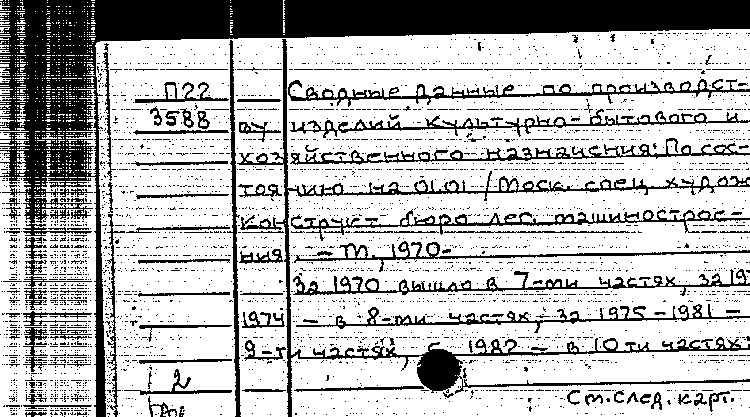 П22 Сводные данные по производст-
3588 ву изделий культурно-бытового и
хозяйственного назначения: По сос-
тоянию на 01.01 / Моск. спец. худож
конструкт. бюро лег. машинострое-
ния. - М., 1970-
За 1970 вышло в 7-ми частях, за 197
1974 - в 8-ми частях; за 1975-1981 -
9-ти частях, с 1982 - в 10ти частях:
2
См.след. карт.